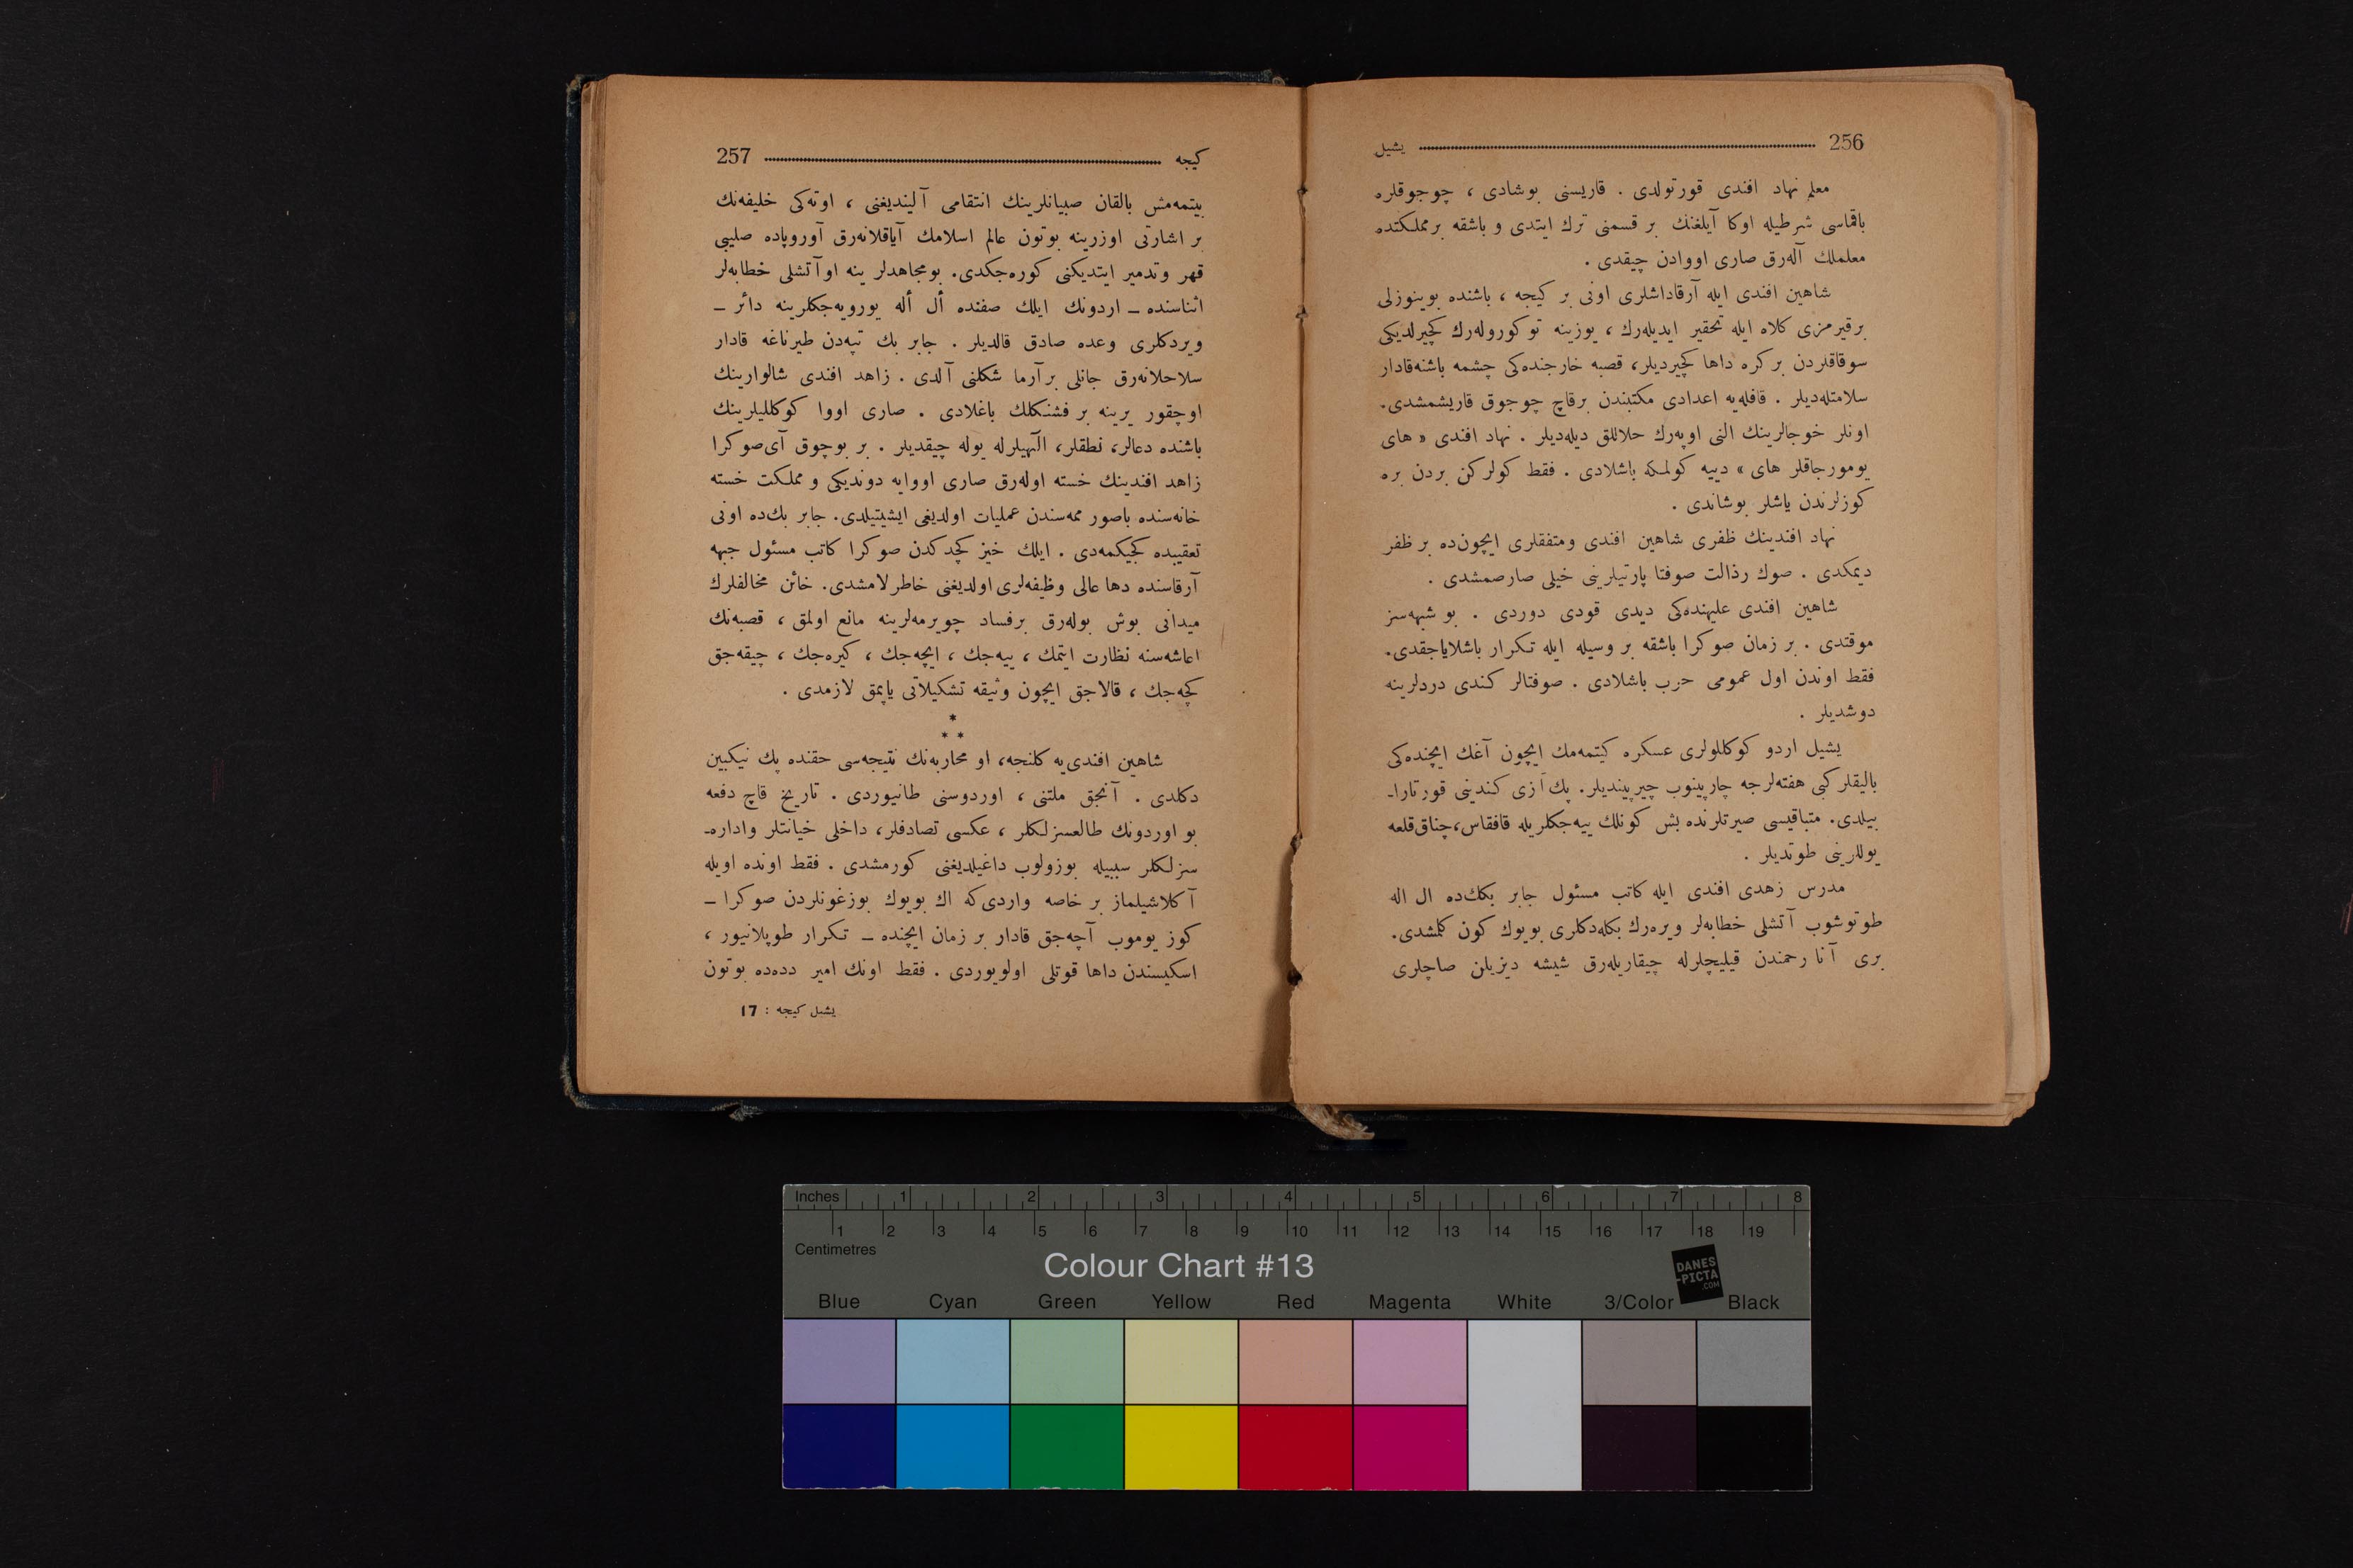 256 يشيل
معلم نهاد افندی قورتولدی . قاریسنی بوشادی ، چوجوقلره
باقماسی شرطیله اوکا آیلغنك بر قسمنی ترك ایتدی و باشقه برمملکتده
معلملك آله‌رق صاری اووادن چیقدی .
شاهین افندی ایله آرقاداشلری اونی بر کیجه ، باشنده بوینوزلی
برقیرمزی کلاه ایله تحقیر ایدیله‌رك ، یوزینه توکوروله‌رك کچیرلدیکی
سوقاقلردن برکره داها کچیردیلر، قصبه خارجنده‌کی چشمه باشنه‌قادار
سلامتله‌دیلر . قافله‌یه اعدادی مکتبندن برقاچ چوجوق قاریشمشدی.
اونلر خوجالرینك النی اوپه‌رك حلاللق دیله‌دیلر . نهاد افندی « های
یومورجاقلر های » دییه کولمکه باشلادی . فقط کولرکن بردن بره
کوزلرندن یاشلر بوشاندی .
نهاد افندینك ظفری شاهین افندی ومتفقلری ایچون‌ده بر ظفر
دیمکدی . صوك رذالت صوفتا پارتیلرینی خیلی صارصمشدی .
شاهین افندی علیهنده‌کی دیدی قودی دوردی . بو شبهه‌سز
موقتدی . بر زمان صوکرا باشقه بر وسیله ایله تکرار باشلایاجقدی.
فقط اوندن اول عمومی حرب باشلادی . صوفتالر کندی دردلرینه
دوشدیلر .
یشیل اردو کوکللولری عسکره کیتمه‌مك ایچون آغك ایچنده‌کی
بالیقلر کبی هفته‌لرجه چارپینوب چیرپیندیلر. پك آزی کندینی قورتارا-
بیلدی. متباقیسی صیرتلرنده بش کونلك ییه‌جکلریله قافقاس،چناق‌قلعه
یوللرینی طوتدیلر .
مدرس زهدی افندی ایله کاتب مسئول جابر بکك‌ده ال اله
طوتوشوب آتشلی خطابه‌لر ویره‌رك بکله‌دکلری بویوك کون کلمشدی.
بری آنا رحمندن قیلیچلرله چیقاریله‌رق شیشه دیزیلن صاچلری
کیجه 257
بیتمه‌مش بالقان صبیانلرینك انتقامی آلیندیغنی ، اوته‌کی خلیفه‌نك
بر اشارتی اوزرینه بوتون عالم اسلامك آیاقلانه‌رق آوروپاده صلیبی
قهر وتدمیر ایتدیکنی کوره‌جکدی. بومجاهدلر ینه اوآتشلی خطابه‌لر
اثناسنده ــ اردونك ایلك صفنده أل أله یورویه‌جکلرینه دائر ــ
ویردکلری وعده صادق قالدیلر . جابر بك تپه‌دن طیرناغه قادار
سلاحلانه‌رق جانلی برآرما شکلنی آلدی . زاهد افندی شالوارینك
اوچقور یرینه بر فشنکلك باغلادی . صاری اووا کوکللیلرینك
باشنده دعالر، نطقلر، الٓهیلرله یوله چیقدیلر . بر بوچوق آی‌صوکرا
زاهد افندینك خسته اوله‌رق صاری اووایه دوندیکی و مملکت خسته
خانه‌سنده باصور ممه‌سندن عملیات اولدیغی ایشیتیلدی. جابر بك‌ده اونی
تعقیبده کجیکمه‌دی . ایلك خیز کچدکدن صوکرا کاتب مسئول جبهه
آرقاسنده دها عالی وظیفه‌لری اولدیغنی خاطرلامشدی. خائن مخالفلرك
میدانی بوش بوله‌رق برفساد چویرمه‌لرینه مانع اولمق ، قصبه‌نك
اعاشه‌سنه نظارت ایتمك ، ییه‌جك ، ایچه‌جك ، کیره‌جك ، چیقه‌جق
کچه‌جك ، قالاجق ایچون وثیقه تشکیلاتی یاپمق لازمدی .
*
* *
شاهین افندی‌یه کلنجه، او محاربه‌نك نتیجه‌سی حقنده پك نیکبین
دکلدی . آنجق ملتنی ، اوردوسنی طانیوردی . تاریخ قاچ دفعه
بو اوردونك طالعسزلکلر ، عکسی تصادفلر، داخلی خیانتلر واداره-
سزلکلر سببیله بوزولوب داغیلدیغنی کورمشدی . فقط اونده اویله
آکلاشیلماز بر خاصه واردی‌که اك بویوك بوزغونلردن صوکرا ــ
کوز یوموب آچه‌جق قادار بر زمان ایچنده ــ تکرار طوپلانیور ،
اسکیسندن داها قوتلی اولویوردی . فقط اونك امیر دده‌ده بوتون
یشیل کیجه : 17
Inches 1 2 3 4 5 6 7 8
1 2 3 4 5 6 7 8 9 10 11 12 13 14 15 16 17 18 19
Centimetres
Colour Chart #13
DANES
-PICTA
.COM
Blue Cyan Green Yellow Red Magenta White 3/Color Black